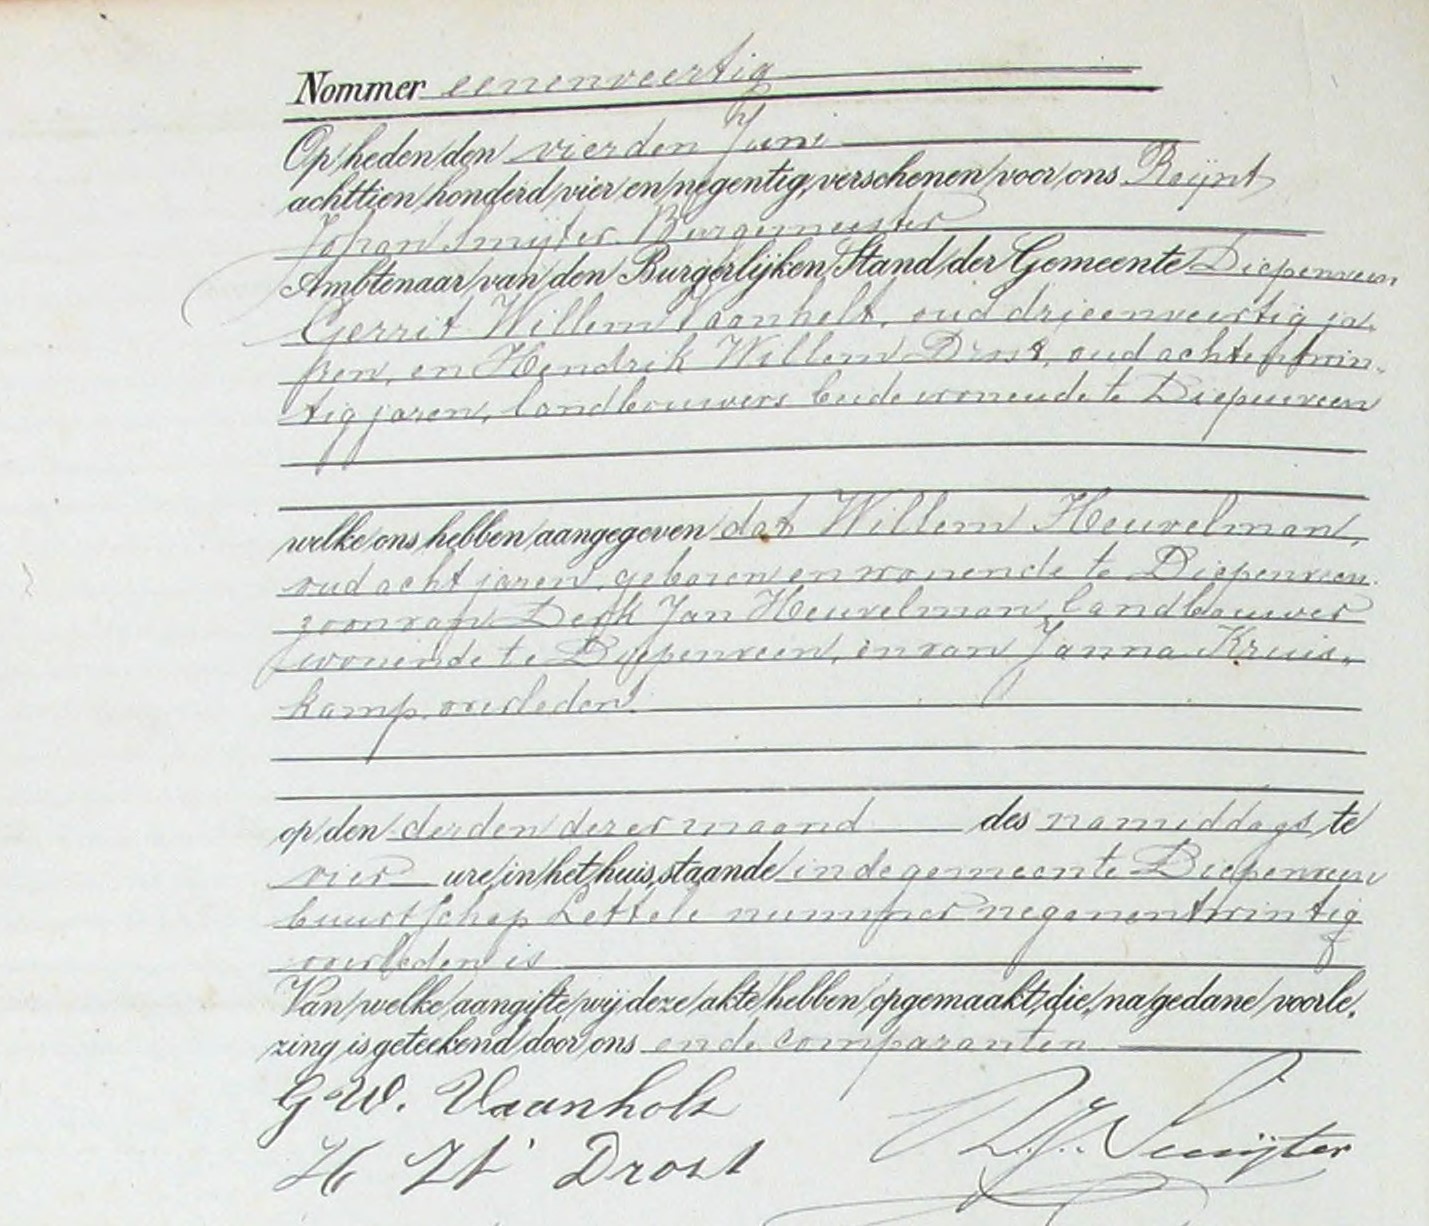 Nommer eenenveertig
Op heden den vierden Juni
achttien honderd vier en negentig, verschenen voor ons Reijnt
Johan Smijter Burgemeester
Ambtenaar van den Burgerlijken Stand der Gemeente Diepenveen
Gerrit Willem Vaanholt, oud drieenveertig ja-
ren, en Hendrik Willem Drost, oud achtentwin-
tig jaren, landbouwers beide wonende te Diepenveen
welke ons hebben aangegeven dat Willem Heuvelman,
oud acht jaren, geboren en wonende te Diepenveen
zoon van Derk Jan Heuvelman, landbouwer
wonende te Diepenveen, en van Janna Kruis-
kamp, overleden.
op den derden dezer maand des namiddags te
vier ure, in het huis, staande in de gemeente Diepenveen
buurtschap Lettele nummer negenentwintig
overleden is
Van welke aangifte wij deze akte hebben opgemaakt, die, na gedane voorle-
zing is geteekend door ons en de comparanten
G W. Vaanholt
H W Drost R.J. Smijter